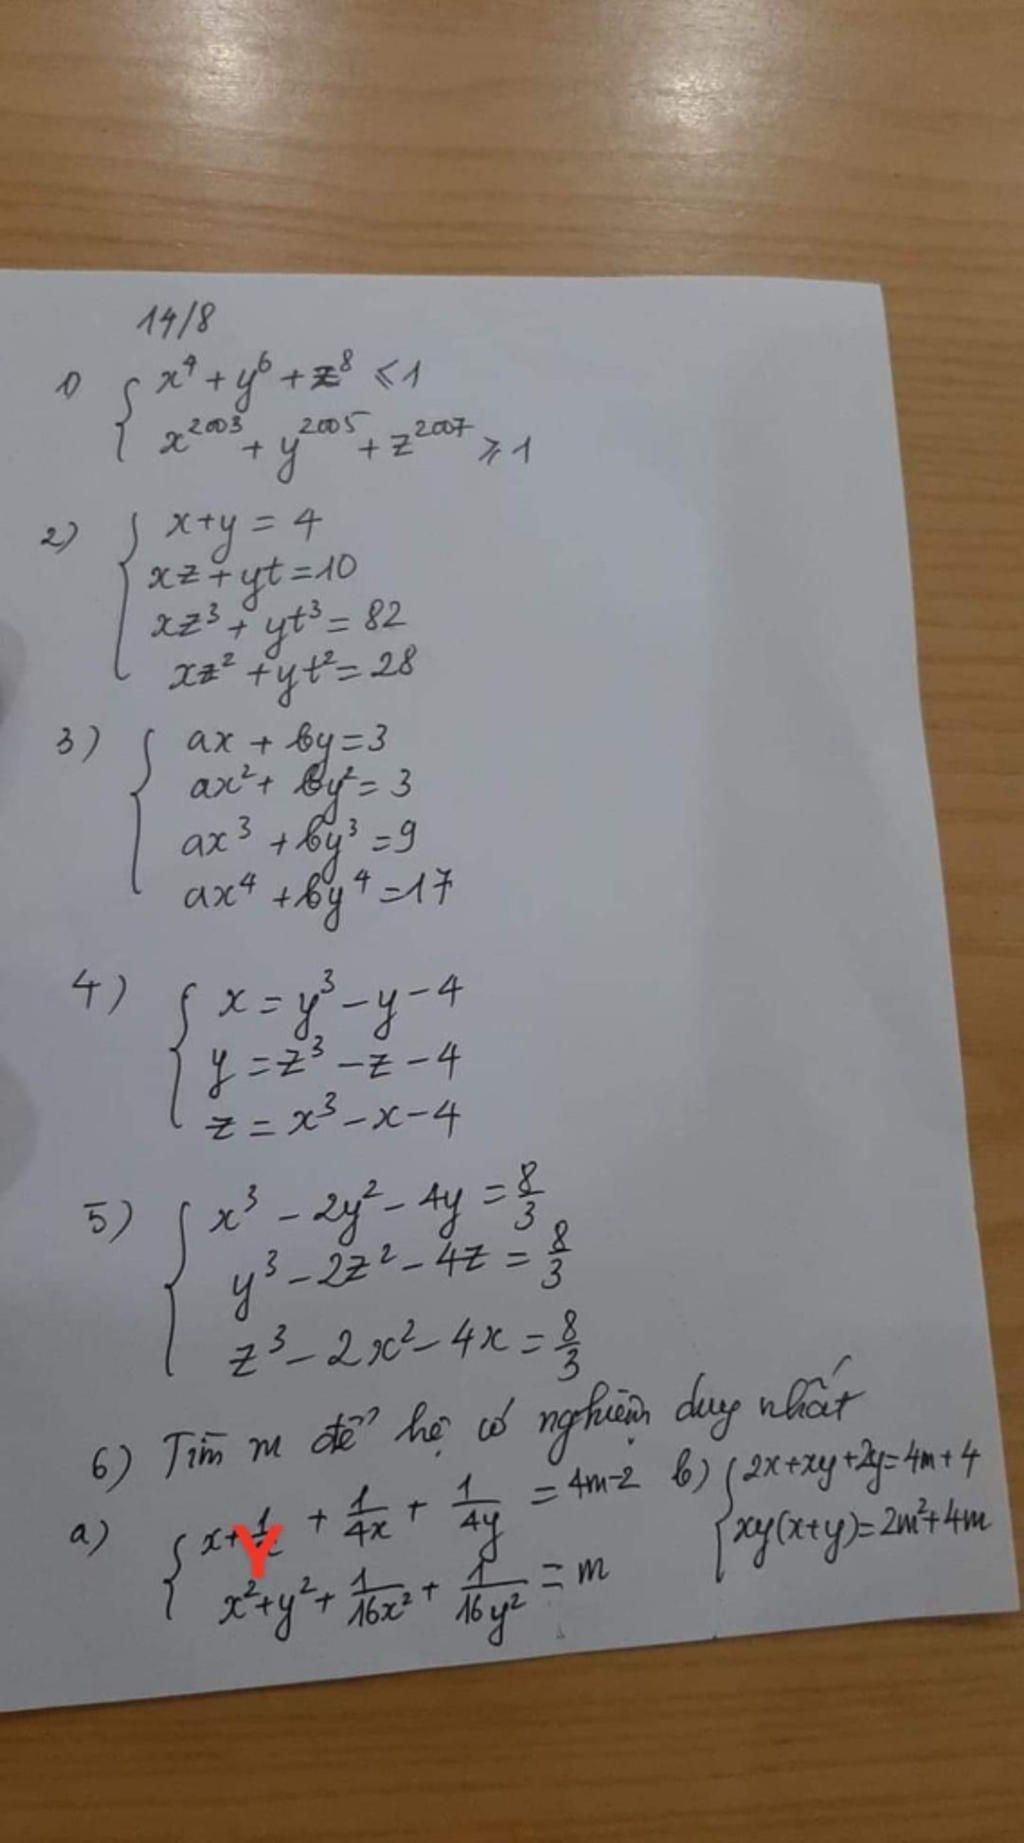 14/8
1) { x⁴ + y⁶ + z⁸ ⩽ 1
x²⁰⁰³ + y²⁰⁰⁵ + z²⁰⁰⁷ ⩾ 1
2) { x+y = 4
xz + yt = 10
xz³ + yt³ = 82
xz² + yt² = 28
3) { ax + by = 3
ax² + by² = 3
ax³ + by³ = 9
ax⁴ + by⁴ = 17
4) { x = y³ - y - 4
y = z³ - z - 4
z = x³ - x - 4
5) { x³ - 2y² - 4y = 8/3
y³ - 2z² - 4z = 8/3
z³ - 2x² - 4x = 8/3
6) Tìm m để hệ có nghiệm duy nhất
a) { x + Y + 1/4x + 1/4y = 4m-2
x² + y² + 1/16x² + 1/16y² = m
b) { 2x + xy + 2y = 4m + 4
xy(x+y) = 2m² + 4m